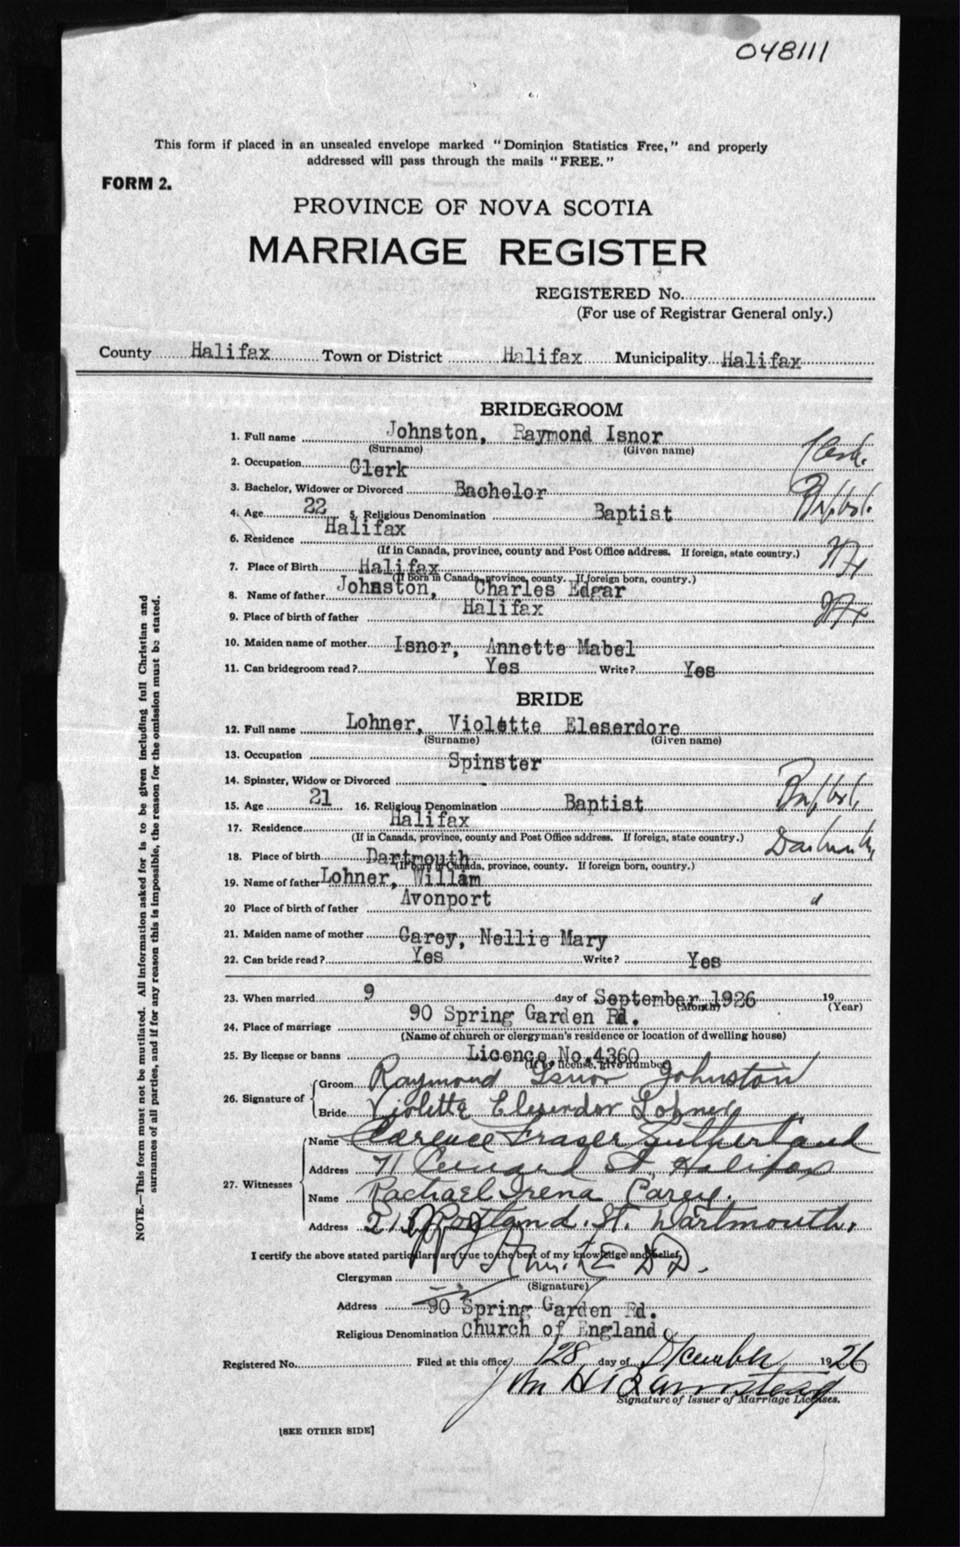 048111
This form if placed in an unsealed envelope marked "Dominion Statistics Free," and properly
addressed will pass through the mails "FREE."
FORM 2.
PROVINCE OF NOVA SCOTIA
MARRIAGE REGISTER
REGISTERED No.
(For use of Registrar General only.)
County Halifax Town or District Halifax Municipality Halifax
BRIDEGROOM
1. Full name Johnston, Raymond Isnor
(Surname) (Given name)
2. Occupation Clerk
3. Bachelor, Widower or Divorced Bachelor
4. Age 22 5. Religious Denomination Baptist
6. Residence Halifax
(If in Canada, province, county and Post Office address. If foreign, state country.)
Hfx
7. Place of Birth Halifax
(If born in Canada, province, county. If foreign born, country.)
8. Name of father Johnston, Charles Edgar
9. Place of birth of father Halifax Hfx
10. Maiden name of mother Isnor, Annette Mabel
11. Can bridegroom read? Yes Write? Yes
BRIDE
12. Full name Lohner, Violette Eleserdore
(Surname) (Given name)
13. Occupation Spinster
14. Spinster, Widow or Divorced
15. Age 21 16. Religious Denomination Baptist
17. Residence Halifax
(If in Canada, province, county and Post Office address. If foreign, state country.)
18. Place of birth Dartmouth
(If born in Canada, province, county. If foreign born, country.)
19. Name of father Lohner, Willam
20 Place of birth of father Avonport "
21. Maiden name of mother Carey, Nellie Mary
22. Can bride read? Yes Write? Yes
23. When married 9 day of September 1926 19
(Month) (Year)
24. Place of marriage 90 Spring Garden Rd.
(Name of church or clergyman's residence or location of dwelling house)
25. By license or banns Licence No. 4360
(If by license, give number)
26. Signature of
Groom Raymond Isnor Johnston
Bride Violette Eleserdor Lohner
27. Witnesses
Name Clarence Fraser Sutherland
Address 71 St. Halifax
Name Rachael Irena Carey.
Address Portland. St. Dartmouth.
I certify the above stated particulars are true to the best of my knowledge and belief.
Clergyman D D.
(Signature)
Address 90 Spring Garden Rd.
Religious Denomination Church of England
Registered No. Filed at this office 28 day of December 1926
John H Barnstead
Signature of Issuer of Marriage Licenses.
[SEE OTHER SIDE]
NOTE.—This form must not be mutilated. All information asked for is to be given including full Christian and
surnames of all parties, and if for any reason this is impossible, the reason for the omission must be stated.